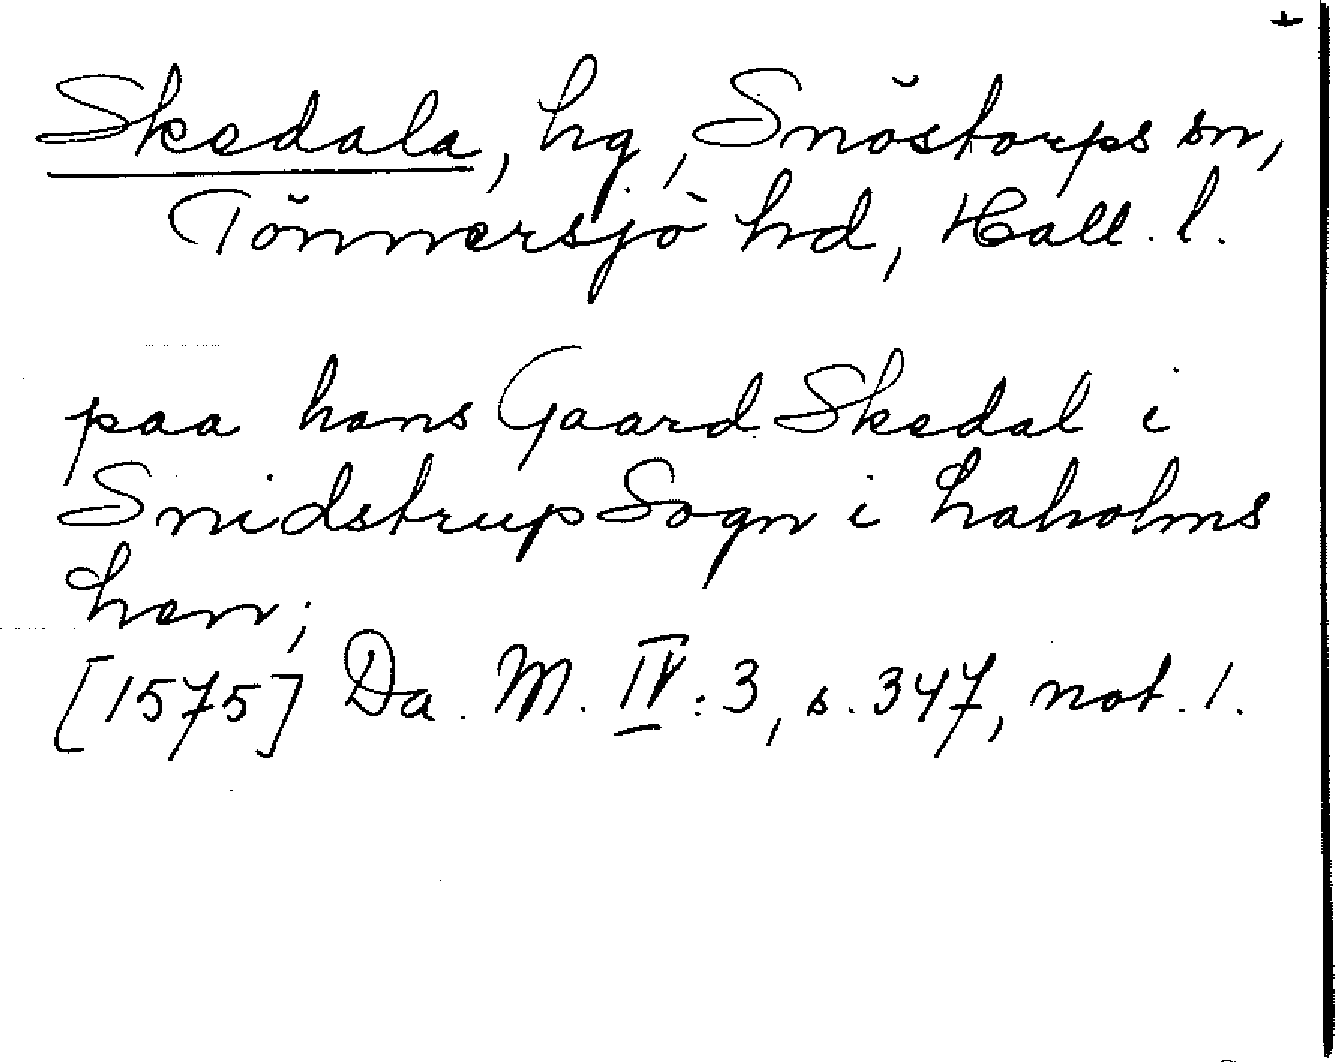 +
Skedala, hg, Snöstorps sn,
Tönnersjö hd, Hall. l.
paa hans Gaard Skedal i
Snidstrup Sogn i Laholms
Len;
[1575] Da. M. IV: 3, s. 347, not. 1.